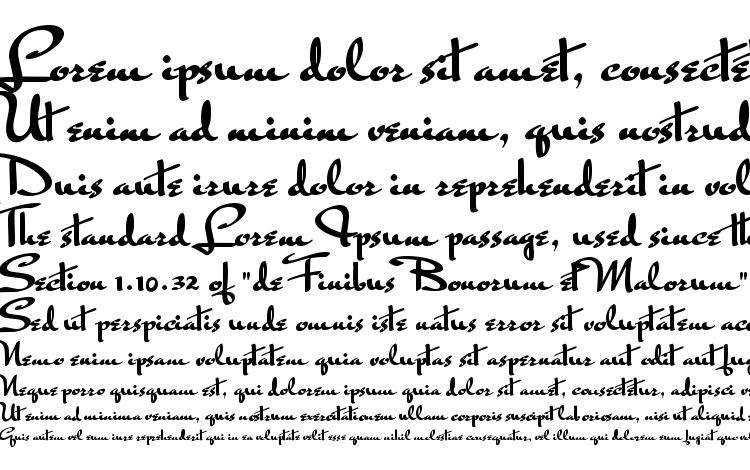 Lorem ipsum dolor sit amet, consecte
Ut enim ad minim veniam, quis nostrud
Duis aute irure dolor in reprehenderit in vol
The standard Lorem Ipsum passage, used since th
Section 1.10.32 of "de Finibus Bonorum et Malorum"
Sed ut perspiciatis unde omnis iste natus error sit voluptatem acc
Nemo enim ipsam voluptatem quia voluptas sit aspernatur aut odit aut fug
Neque porro quisquam est, qui dolorem ipsum quia dolor sit amet, consectetur, adipisci v
Ut enim ad minima veniam, quis nostrum exercitationem ullam corporis suscipit laboriosam, nisi ut aliquid
Quis autem vel eum iure reprehenderit qui in ea voluptate velit esse quam nihil molestiae consequatur, vel illum qui dolorem eum fugiat quo vo